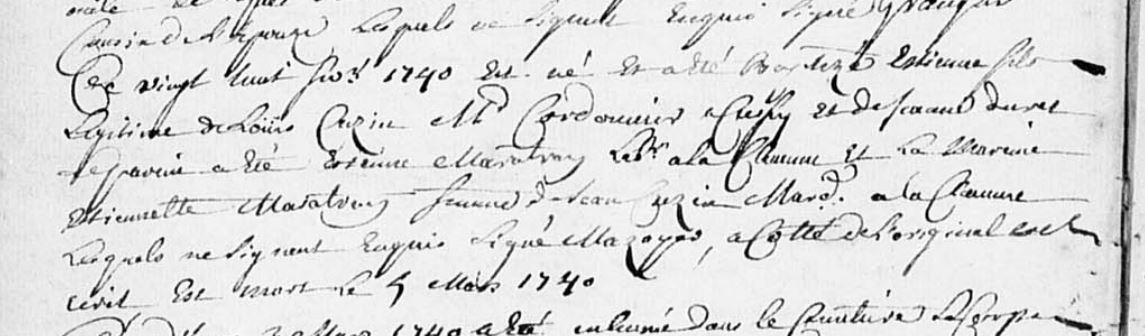 Cousin de l'Epouze Lesquels ne Signent Enquis Signé
Le vingt huit fevr 1740 Est né Et a Eté Baptizé Estienne fils
Legitime de Loüis Cuzin Md Cordonnier a Cuzy et de Jeanne duret
le parain a Eté Estienne Matatray Labr a la Chaume Et La Maraine
Estiennette Matatray femme de Jean Cuzin Mard. a la Chaume
Lesquels ne Signent Enquis Signé Mazoyer, a Cotté de l'original est
ecrit Est mort Le 5 Mars 1740
Mars 1740 a Eté enhumé dans le Cimitière Le Corps